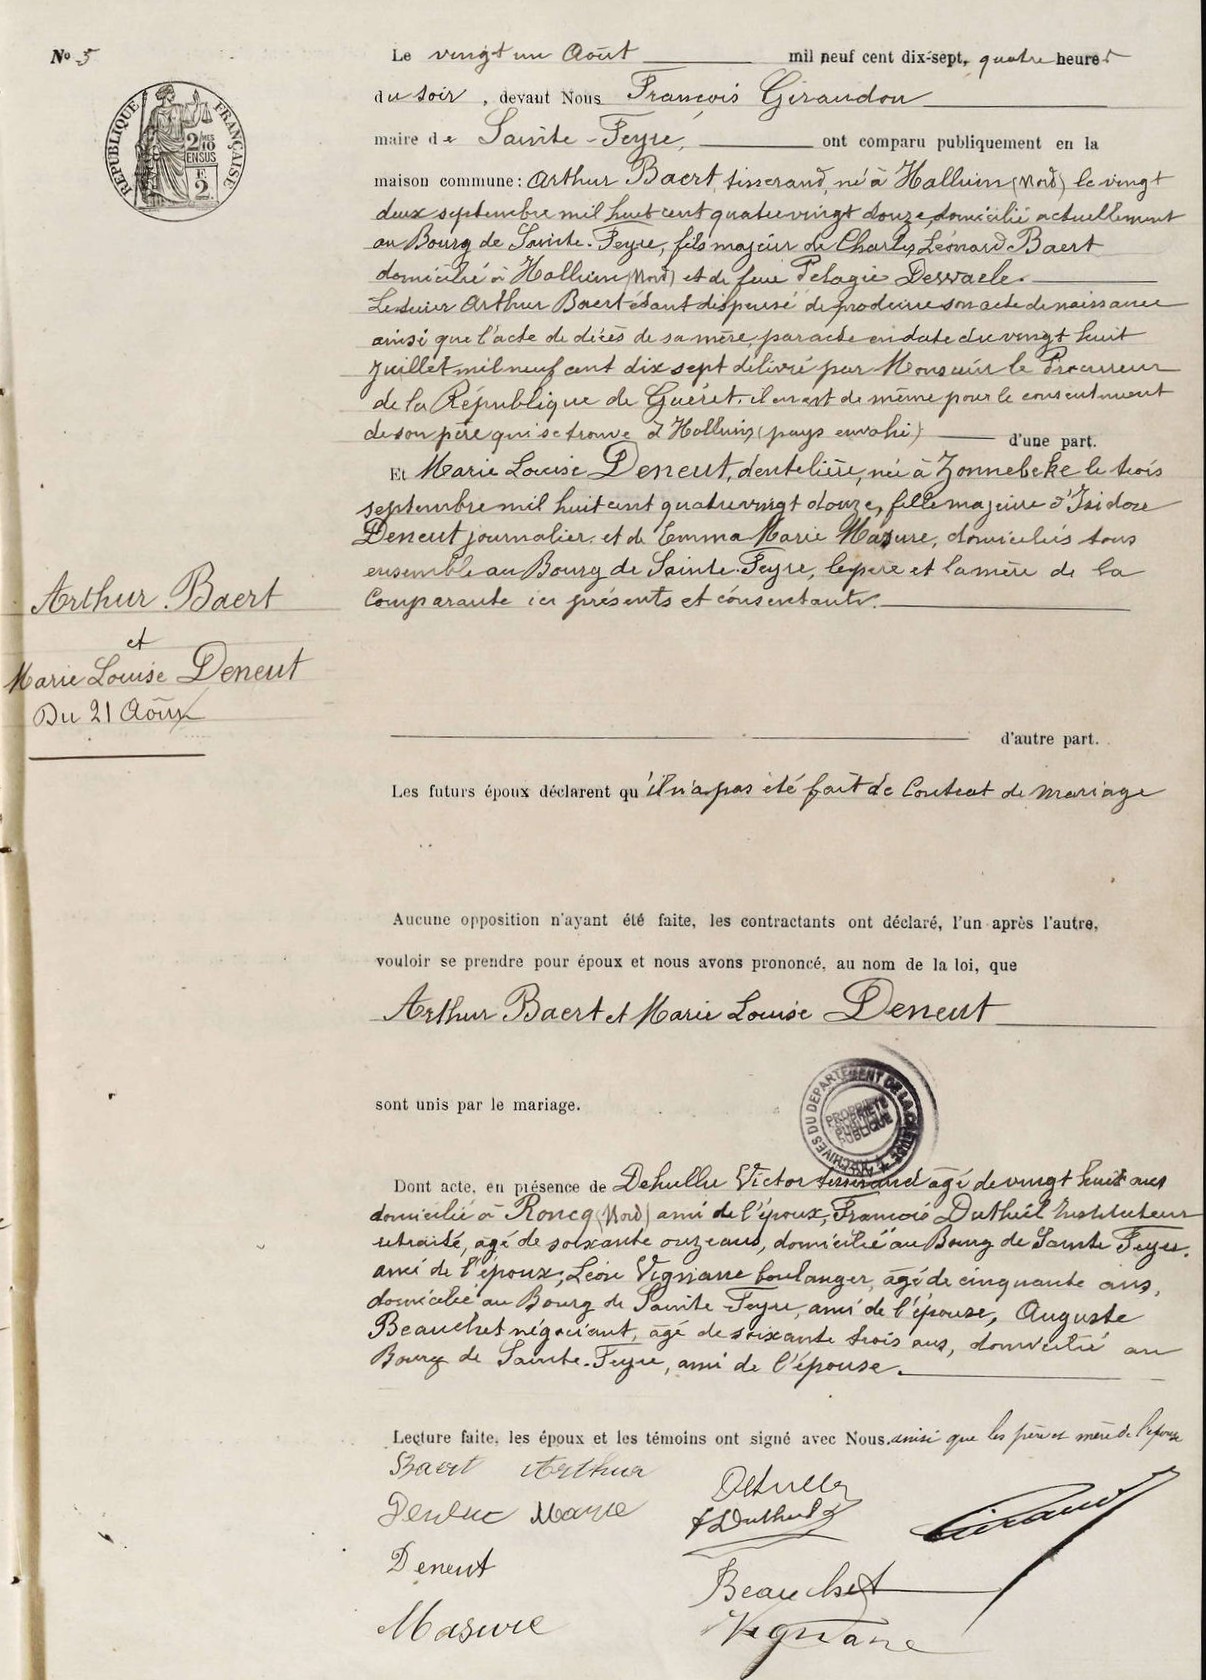 No 5
Le vingt un Août mil neuf cent dix-sept, quatre heures
du soir, devant Nous François Giraudon
maire de Sainte-Feyre, ont comparu publiquement en la
maison commune: Arthur Baert, tisserand, né à Halluin (Nord) le vingt
deux septembre mil huit cent quatre vingt douze, domicilié actuellement
au Bourg de Sainte-Feyre, fils majeur de Charles Léonard Baert
domicilié à Halluin (Nord) et de feue Pélagie Deswaele.
Le sieur Arthur Baert étant dispensé de produire son acte de naissance
ainsi que l'acte de décès de sa mère, par acte en date du vingt huit
Juillet mil neuf cent dix sept délivré par Monsieur le Procureur
de la République de Guéret, il en est de même pour le consentement
de son père qui se trouve à Halluin (pays envahi) d'une part.
Et Marie Louise Deneut, dentelière, née à Zonnebeke le trois
septembre mil huit cent quatre vingt douze, fille majeure d'Isidore
Deneut journalier et de Emma Marie Masure, domiciliés tous
ensemble au Bourg de Sainte-Feyre, le père et la mère de la
Comparante ici présents et consentants.
Arthur Baert
et
Marie Louise Deneut
Du 21 Août
d'autre part.
Les futurs époux déclarent qu'il n'a pas été fait de Contrat de mariage
Aucune opposition n'ayant été faite, les contractants ont déclaré, l'un après l'autre,
vouloir se prendre pour époux et nous avons prononcé, au nom de la loi, que
Arthur Baert et Marie Louise Deneut
sont unis par le mariage.
Dont acte, en présence de Dehullu Victor tisserand âgé de vingt huit ans
domicilié à Roncq (Nord) ami de l'époux, François Dutheil Instituteur
retraité, âgé de soixante onze ans, domicilié au Bourg de Sainte Feyre.
ami de l'époux, Léon Vignane boulanger, âgé de cinquante ans,
domicilié au Bourg de Sainte-Feyre, ami de l'épouse, Auguste
Beauchet négociant, âgé de soixante trois ans, domicilié au
Bourg de Sainte-Feyre, ami de l'épouse.
Lecture faite, les époux et les témoins ont signé avec Nous. ainsi que les père et mère de l'épouse
Baert Arthur
Deneut Marie
Deneut
Masure
Dehullu
Dutheil
Beauchet
Vignane
Giraudon
RÉPUBLIQUE FRANÇAISE
2/10 EN SUS
F
2
ARCHIVES DU DEPARTEMENT DE LA CREUSE
PROPRIÉTÉ
PUBLIQUE